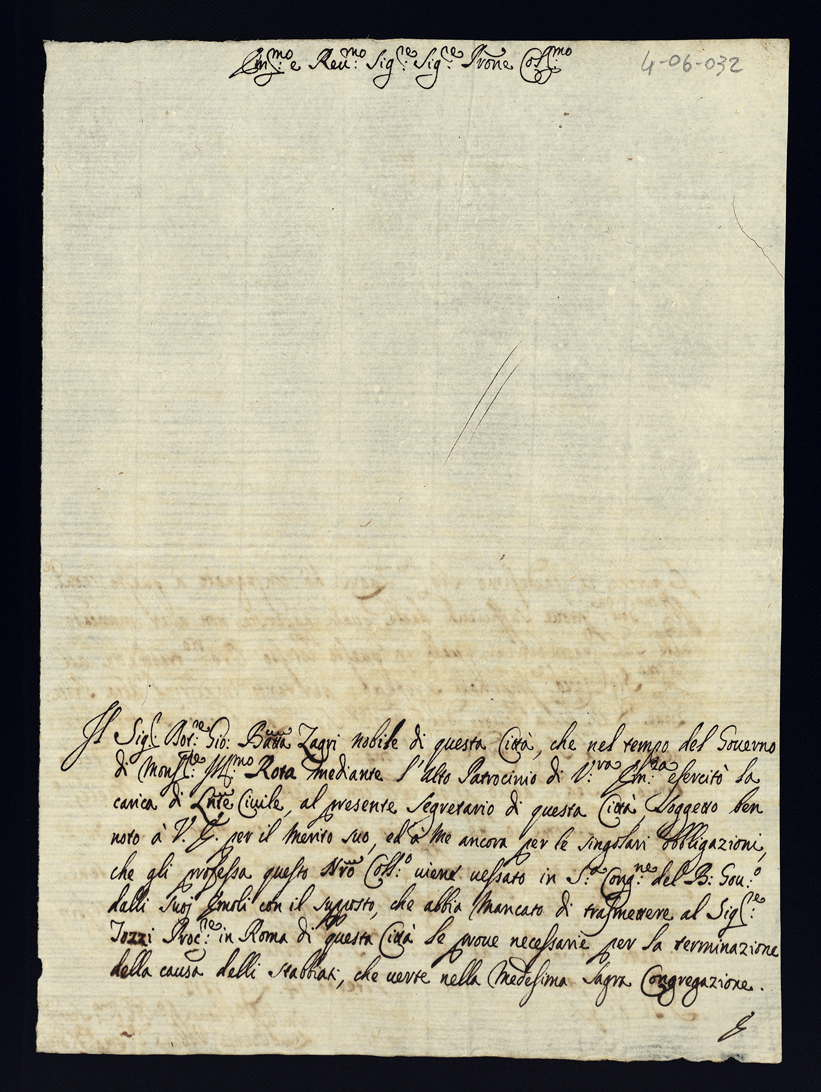 Em:mo e Reu:mo Sig:re Sig:re Prone Coll:mo
4-06-032
Il Sig:r Dot:re Gio: Batta Zagri nobile di questa Città, che nel tempo del Governo
di Mons:re Ill:mo Rota mediante l'alto Patrocinio di V:ra Em:za esercitò la
carica di Lnte Ciuile, al presente Segretario di questa Città, Soggetto ben
noto à V. E. per il merito suo, ed à me ancora per le singolari obbligazioni,
che gli professa questo Nro Coll:o uiene uessato in S:a Cong:ne del B: Gou:o
dalli suoj Emoli con il suposto, che abbia mancato di trasmettere al Sig:re
Iozzi Proc:re in Roma di questa Città le proue necessarie per la terminazione
della causa delli stabbiati, che uerte nella medesima Sagra Congregazione.
E